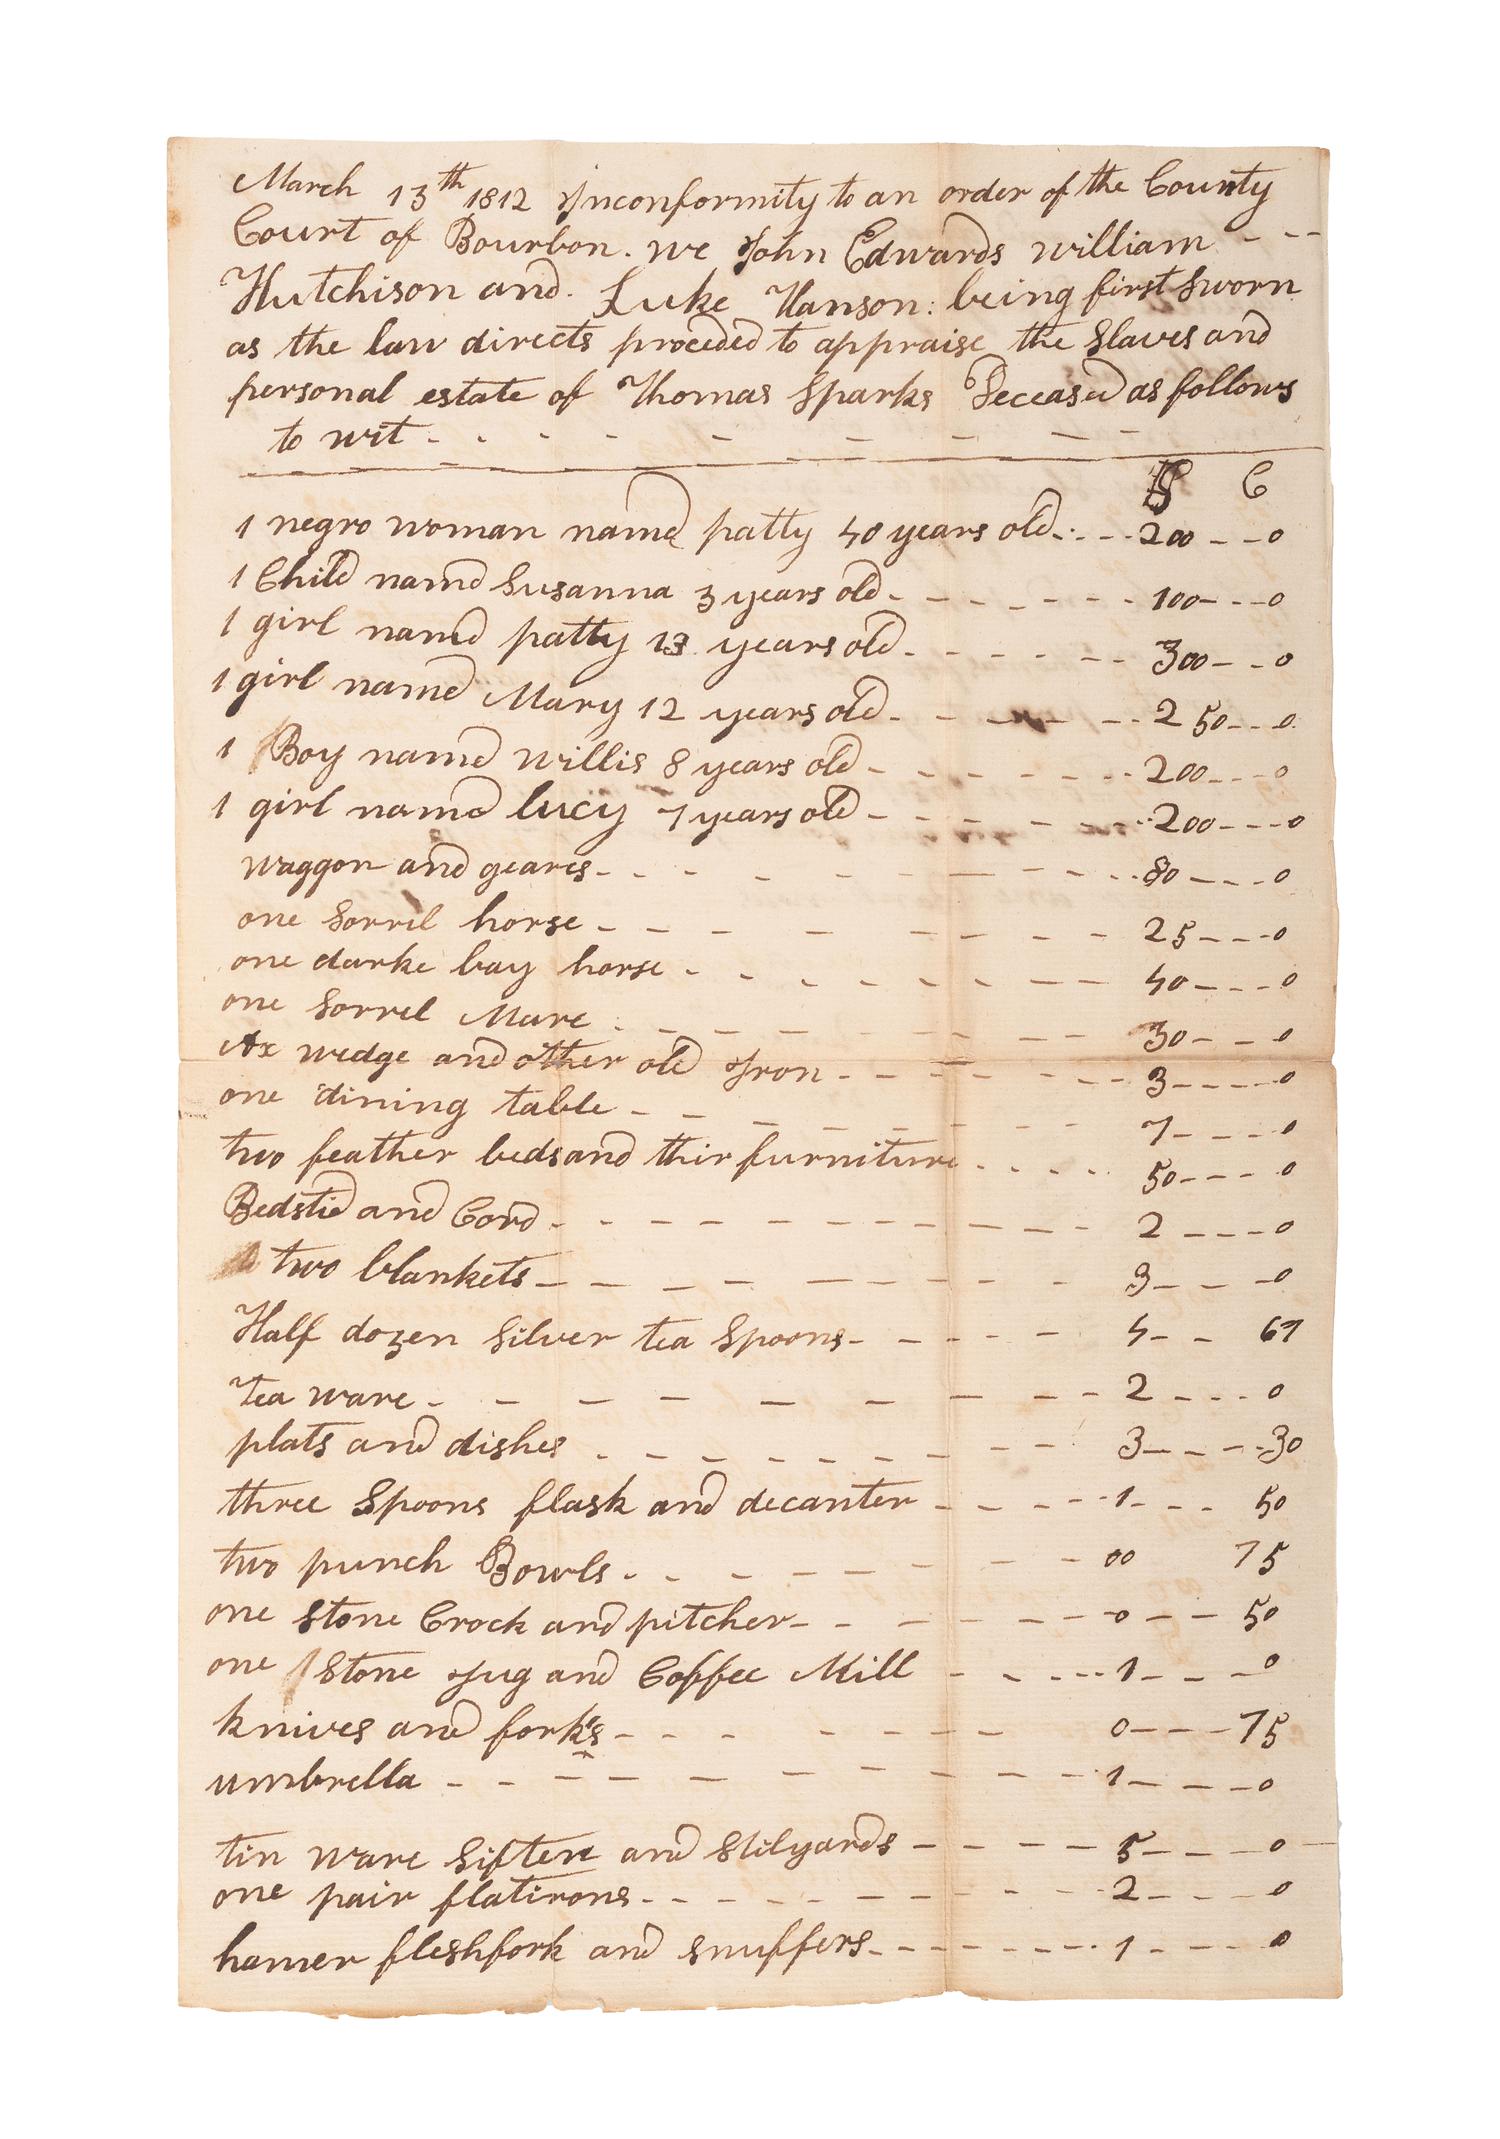 March 13th 1812 Inconformity to an order of the County
Court of Bourbon. we John Edwards william - - -
Hutchison and. Luke Hanson: being first Sworn
as the law directs proceded to appraise the Slaves and
personal estate of Thomas Sparks Deceasd as follows
to wit - - - - - - - - -
$ C
1 negro woman named patty 40 years old - - - 200 - - 0
1 Child named Susanna 3 years old - - - - - - 100 - - - 0
1 girl named patty 13 years old - - - - - 300 - - 0
1 girl named Mary 12 years old - - - - - 250 - - - 0
1 Boy named willis 8 years old - - - - - - 200 - - - 0
1 girl named lucy 7 years old - - - - - - 200 - - - 0
waggon and geares - - - - - - - - - 80 - - - 0
one Sorril horse - - - - - - - - 25 - - - 0
one darke bay horse - - - - - - - - 40 - - - 0
one Sorrel Mare - - - - - - - 30 - - - 0
Ax wedge and other old Iron - - - - - - - 3 - - - - 0
one dining table - - - - - - - 7 - - - - 0
two feather beds and thir furniture - - - - 50 - - - 0
Bedstid and Cord - - - - - - - - - - 2 - - - - 0
two blankets - - - - - - - - - 3 - - - 0
Half dozen Silver tea Spoons - - - - - 4 - - 67
tea ware - - - - - - - - - 2 - - - 0
plats and dishes - - - - - - - - - 3 - - - - 30
three Spoons flask and decanter - - - - 1 - - - 50
two punch Bowls - - - - - - - - 00 75
one Stone Crock and pitcher - - - - - - - 0 - - - 50
one Stone Jug and Coffee Mill - - - - 1 - - - - 0
knives and forks - - - - - - - 0 - - - 75
umbrella - - - - - - - - - - 1 - - - - 0
tin ware Sifter and Stilyards - - - - 5 - - - - 0
one pair flatirons - - - - - - - - - 2 - - - - 0
hamer fleshfork and snuffers - - - - - - 1 - - - - 0